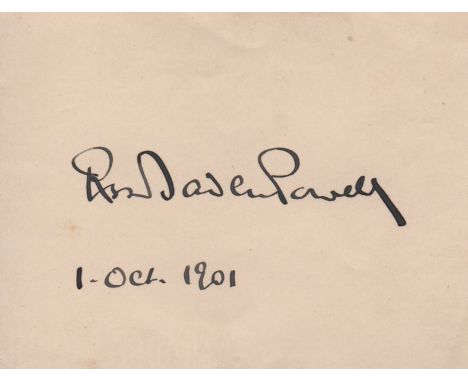 RSS Baden Powell
1. Oct. 1901